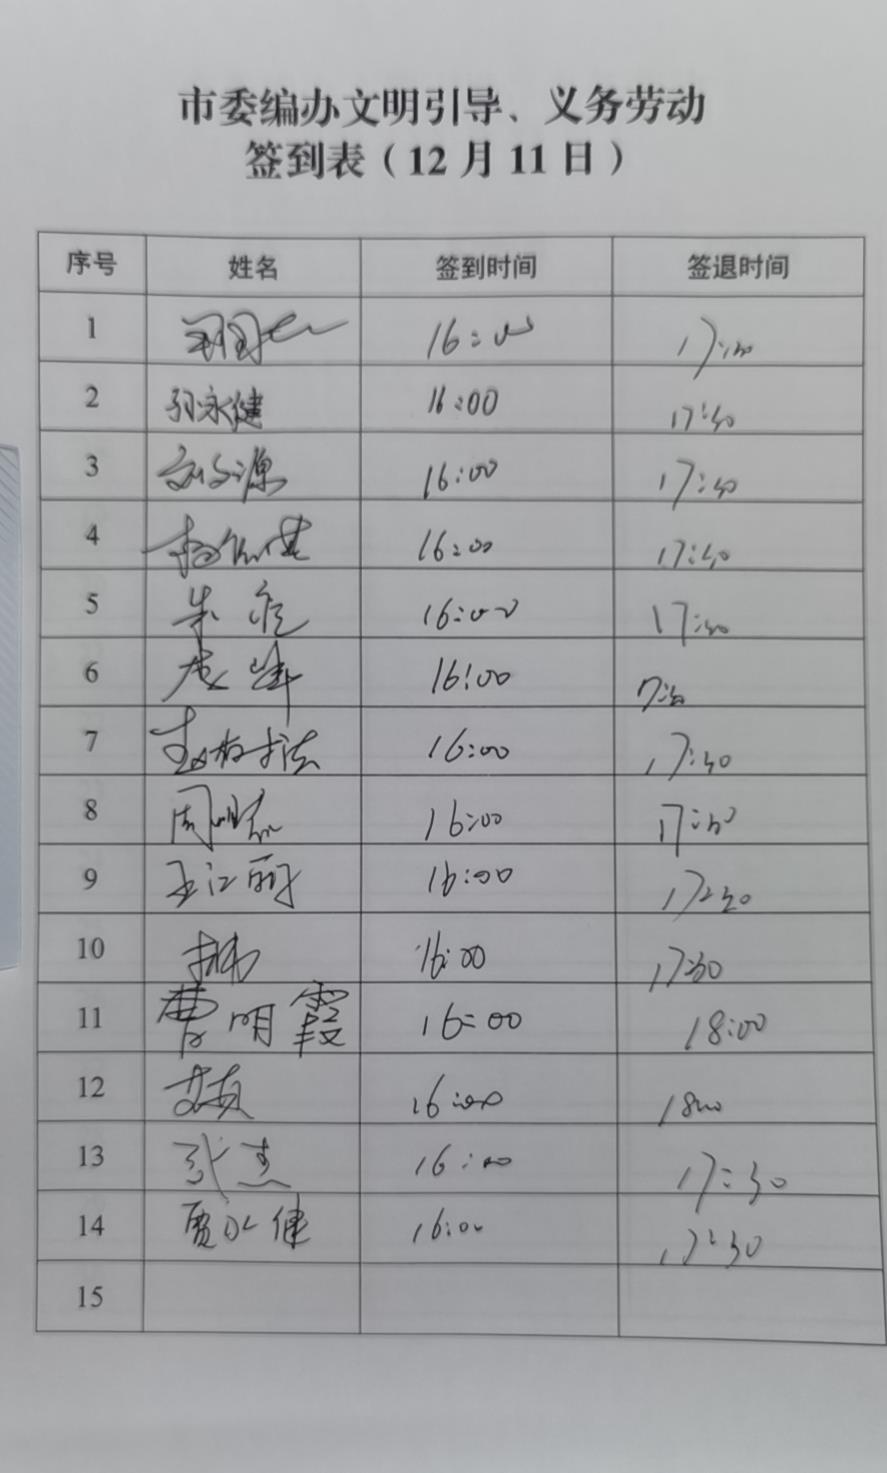 市委编办文明引导、义务劳动
签到表（12月11日）
序号 姓名 签到时间 签退时间
1 16:00
2 孙永健 16:00 17:30
3 刘文源 16:00 17:30
4 16:00 17:30
5 朱 16:00 17:30
6 16:00
7 16:00 17:30
8 周 16:00 17:30
9 王江丽 16:00 17:30
10 16:00 17:30
11 曹明霞 16:00 18:00
12 16:00 1800
13 张杰 16:00 17:30
14 贾永健 16:00 17:30
15